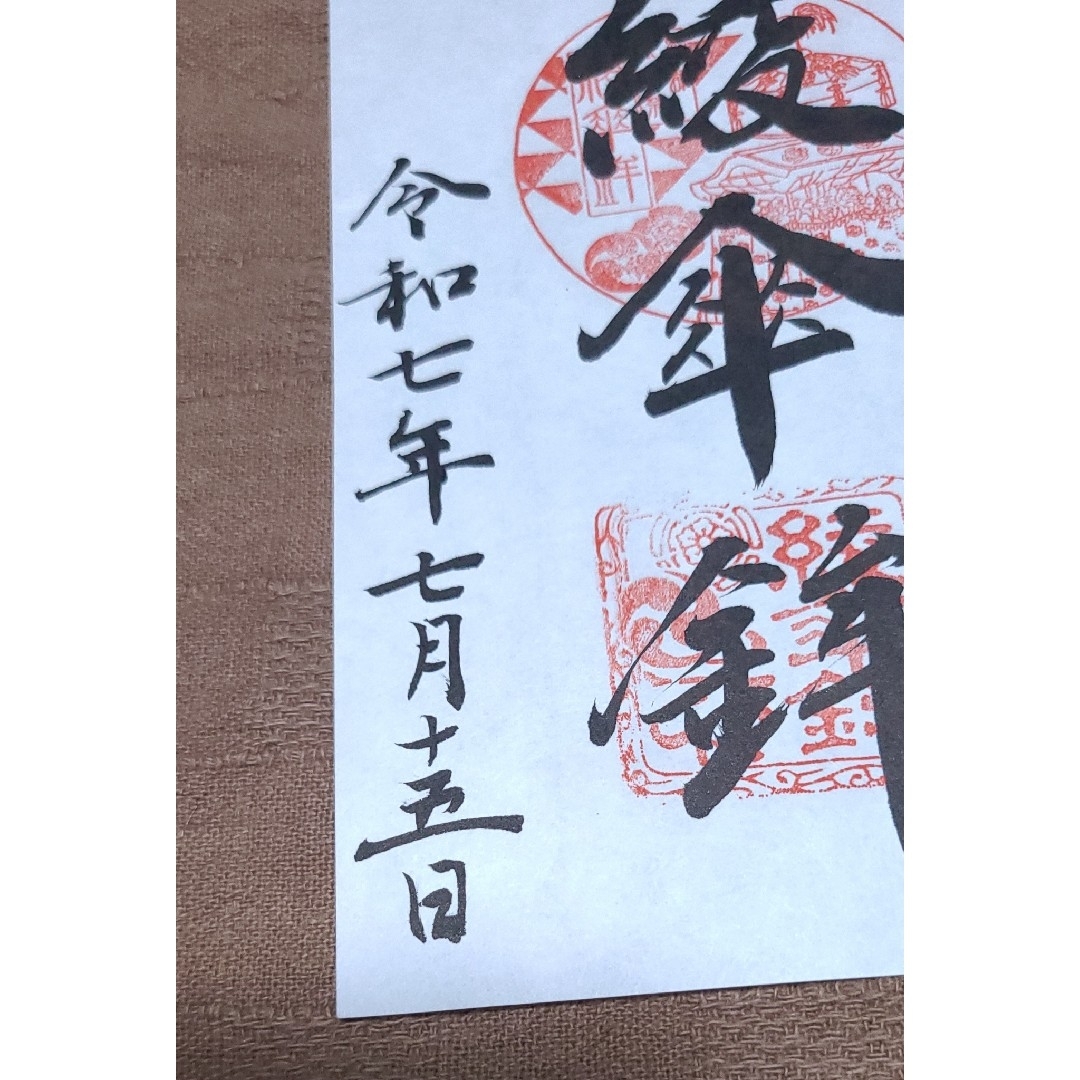 綾傘鉾
令和七年七月十五日